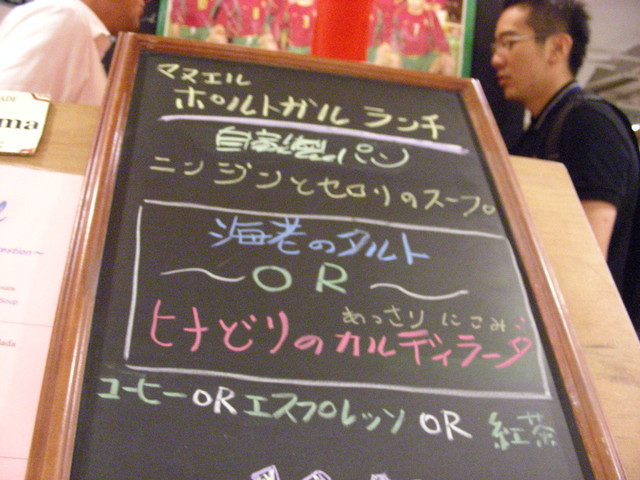 マヌエル
ポルトガル ランチ
自家製パン
ニンジンとセロリのスープ
海老のタルト
〜OR〜
あっさり にこみ
ヒナどりのカルディラーダ
コーヒー OR エスプレッソ OR 紅茶
ma